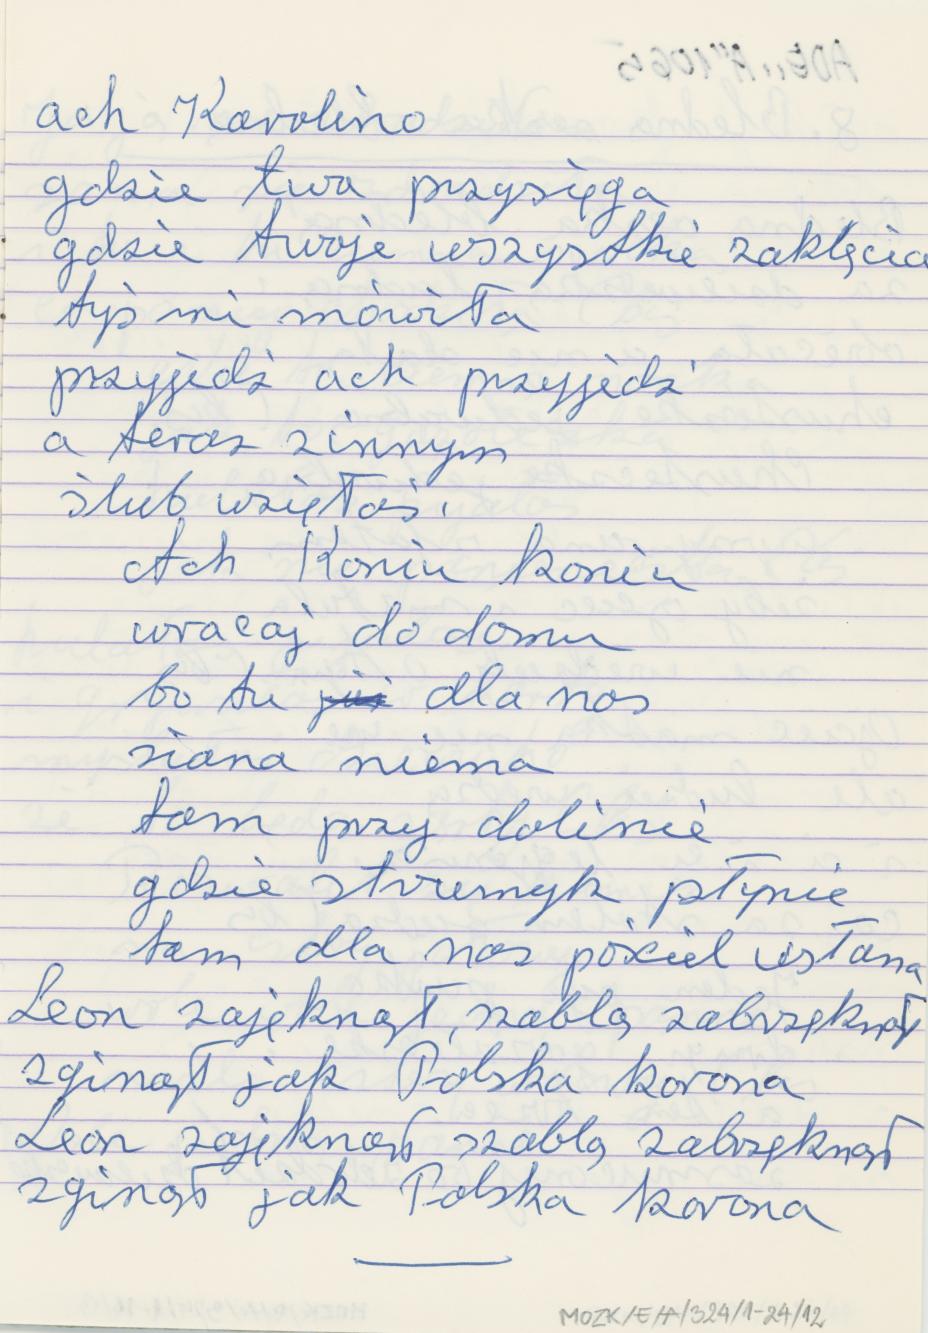 ach Karolino
gdzie twa przysięga
gdzie twoje wszystkie zaklęcia
tyś mi mówiła
przyjedź ach przyjedź
a teraz zinnym
ślub wzięłaś.
Ach Koniu koniu
wracaj do domu
bo tu już dla nas
siana niema
tam przy dolinie
gdzie strumyk płynie
tam dla nas pościel usłana
Leon zajęknął, szablą zabrzęknął
zginął jak Polska korona
Leon zajęknął szablą zabrzęknął
zginął jak Polska korona
MOZK/E/A/324/1-24/12